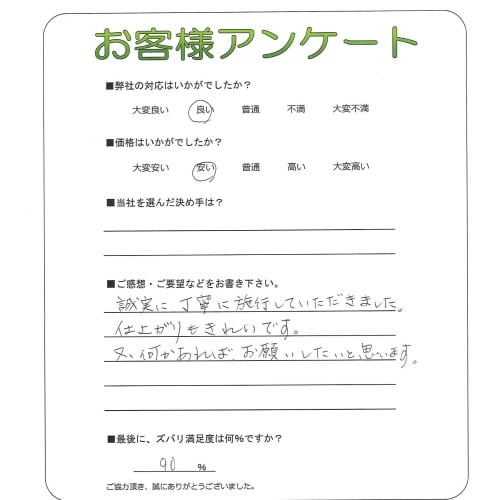 お客様アンケート
■弊社の対応はいかがでしたか？
大変良い 良い 普通 不満 大変不満
■価格はいかがでしたか？
大変安い 安い 普通 高い 大変高い
■当社を選んだ決め手は？
■ご感想・ご要望などをお書き下さい。
誠実に、丁寧に施行していただきました。
仕上がりもきれいです。
又、何かあれば、お願いしたいと思います。
■最後に、ズバリ満足度は何%ですか？
90 %
ご協力頂き、誠にありがとうございました。